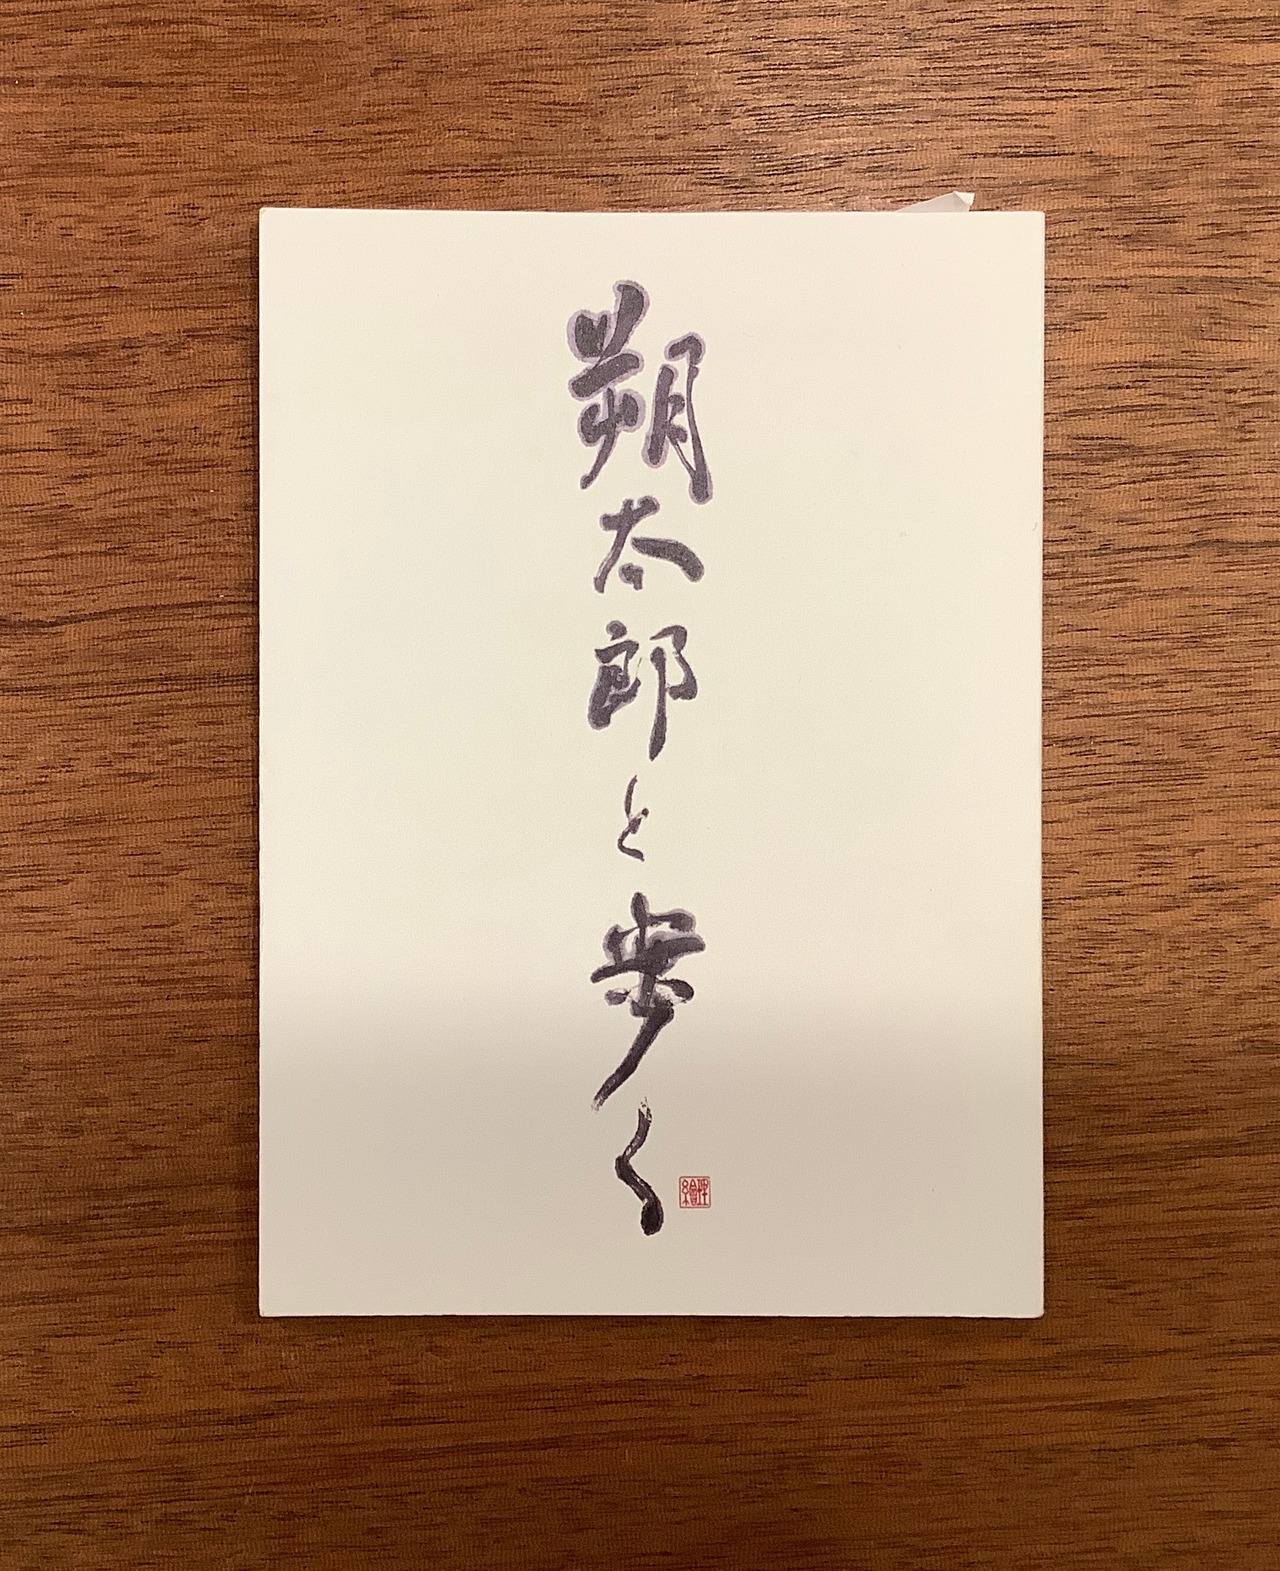 朔太郎と歩く